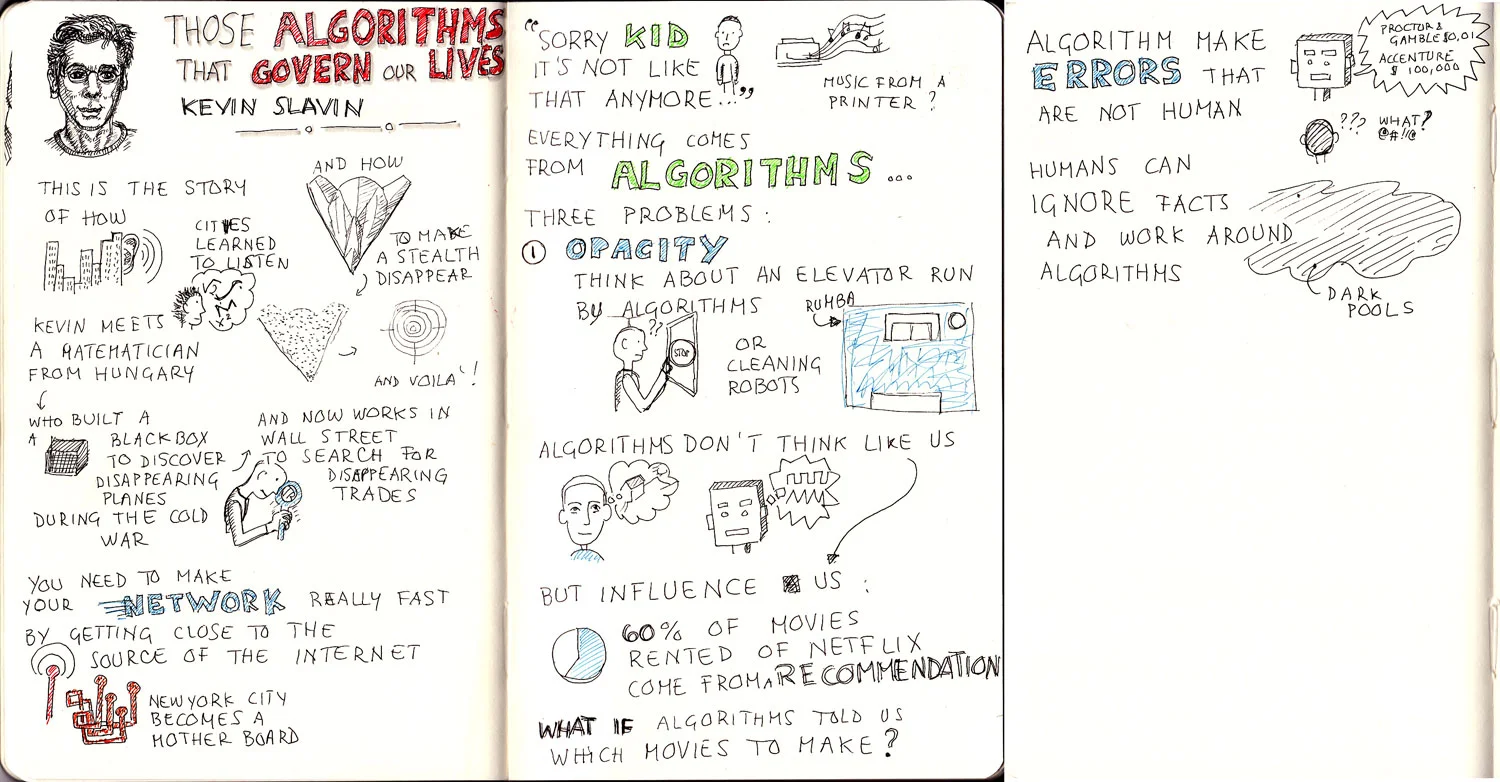 THOSE ALGORITHMS
THAT GOVERN OUR LIVES
KEVIN SLAVIN
THIS IS THE STORY
OF HOW
CITIES
LEARNED
TO LISTEN
AND HOW
TO MAKE
A STEALTH
DISAPPEAR
AND VOILA'!
KEVIN MEETS
A MATEMATICIAN
FROM HUNGARY
WHO BUILT A
A
BLACK BOX
TO DISCOVER
DISAPPEARING
PLANES
DURING THE COLD
WAR
AND NOW WORKS IN
WALL STREET
TO SEARCH FOR
DISAPPEARING
TRADES
YOU NEED TO MAKE
YOUR NETWORK REALLY FAST
BY GETTING CLOSE TO THE
SOURCE OF THE INTERNET
NEW YORK CITY
BECOMES A
MOTHER BOARD
"SORRY KID
IT'S NOT LIKE
THAT ANYMORE..."
MUSIC FROM A
PRINTER?
EVERYTHING COMES
FROM ALGORITHMS...
THREE PROBLEMS:
1 OPACITY
THINK ABOUT AN ELEVATOR RUN
BY ALGORITHMS
??
STOP
OR
CLEANING
ROBOTS
RUMBA
ALGORITHMS DON'T THINK LIKE US
BUT INFLUENCE US:
60% OF MOVIES
RENTED OF NETFLIX
COME FROM A RECOMMENDATION
WHAT IF ALGORITHMS TOLD US
WHICH MOVIES TO MAKE?
ALGORITHM MAKE
ERRORS THAT
ARE NOT HUMAN
PROCTOR &
GAMBLE $0,01
ACCENTURE
$ 100,000
??? WHAT?
@#!!@
HUMANS CAN
IGNORE FACTS
AND WORK AROUND
ALGORITHMS
DARK
POOLS